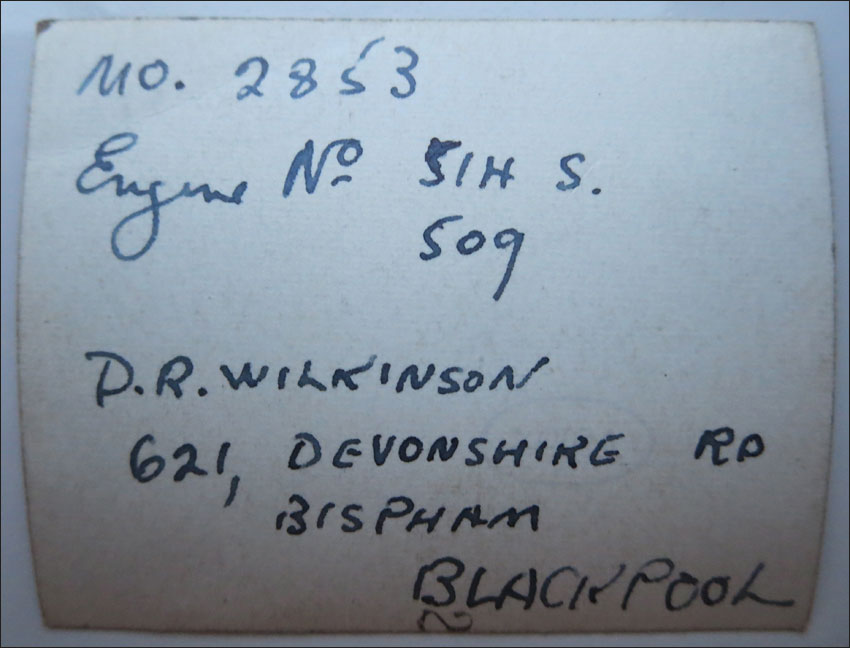 MO. 2853
Engine Nº 51H S.
509
D.R. WILKINSON
621, DEVONSHIRE RD
BISPHAM
BLACKPOOL
2